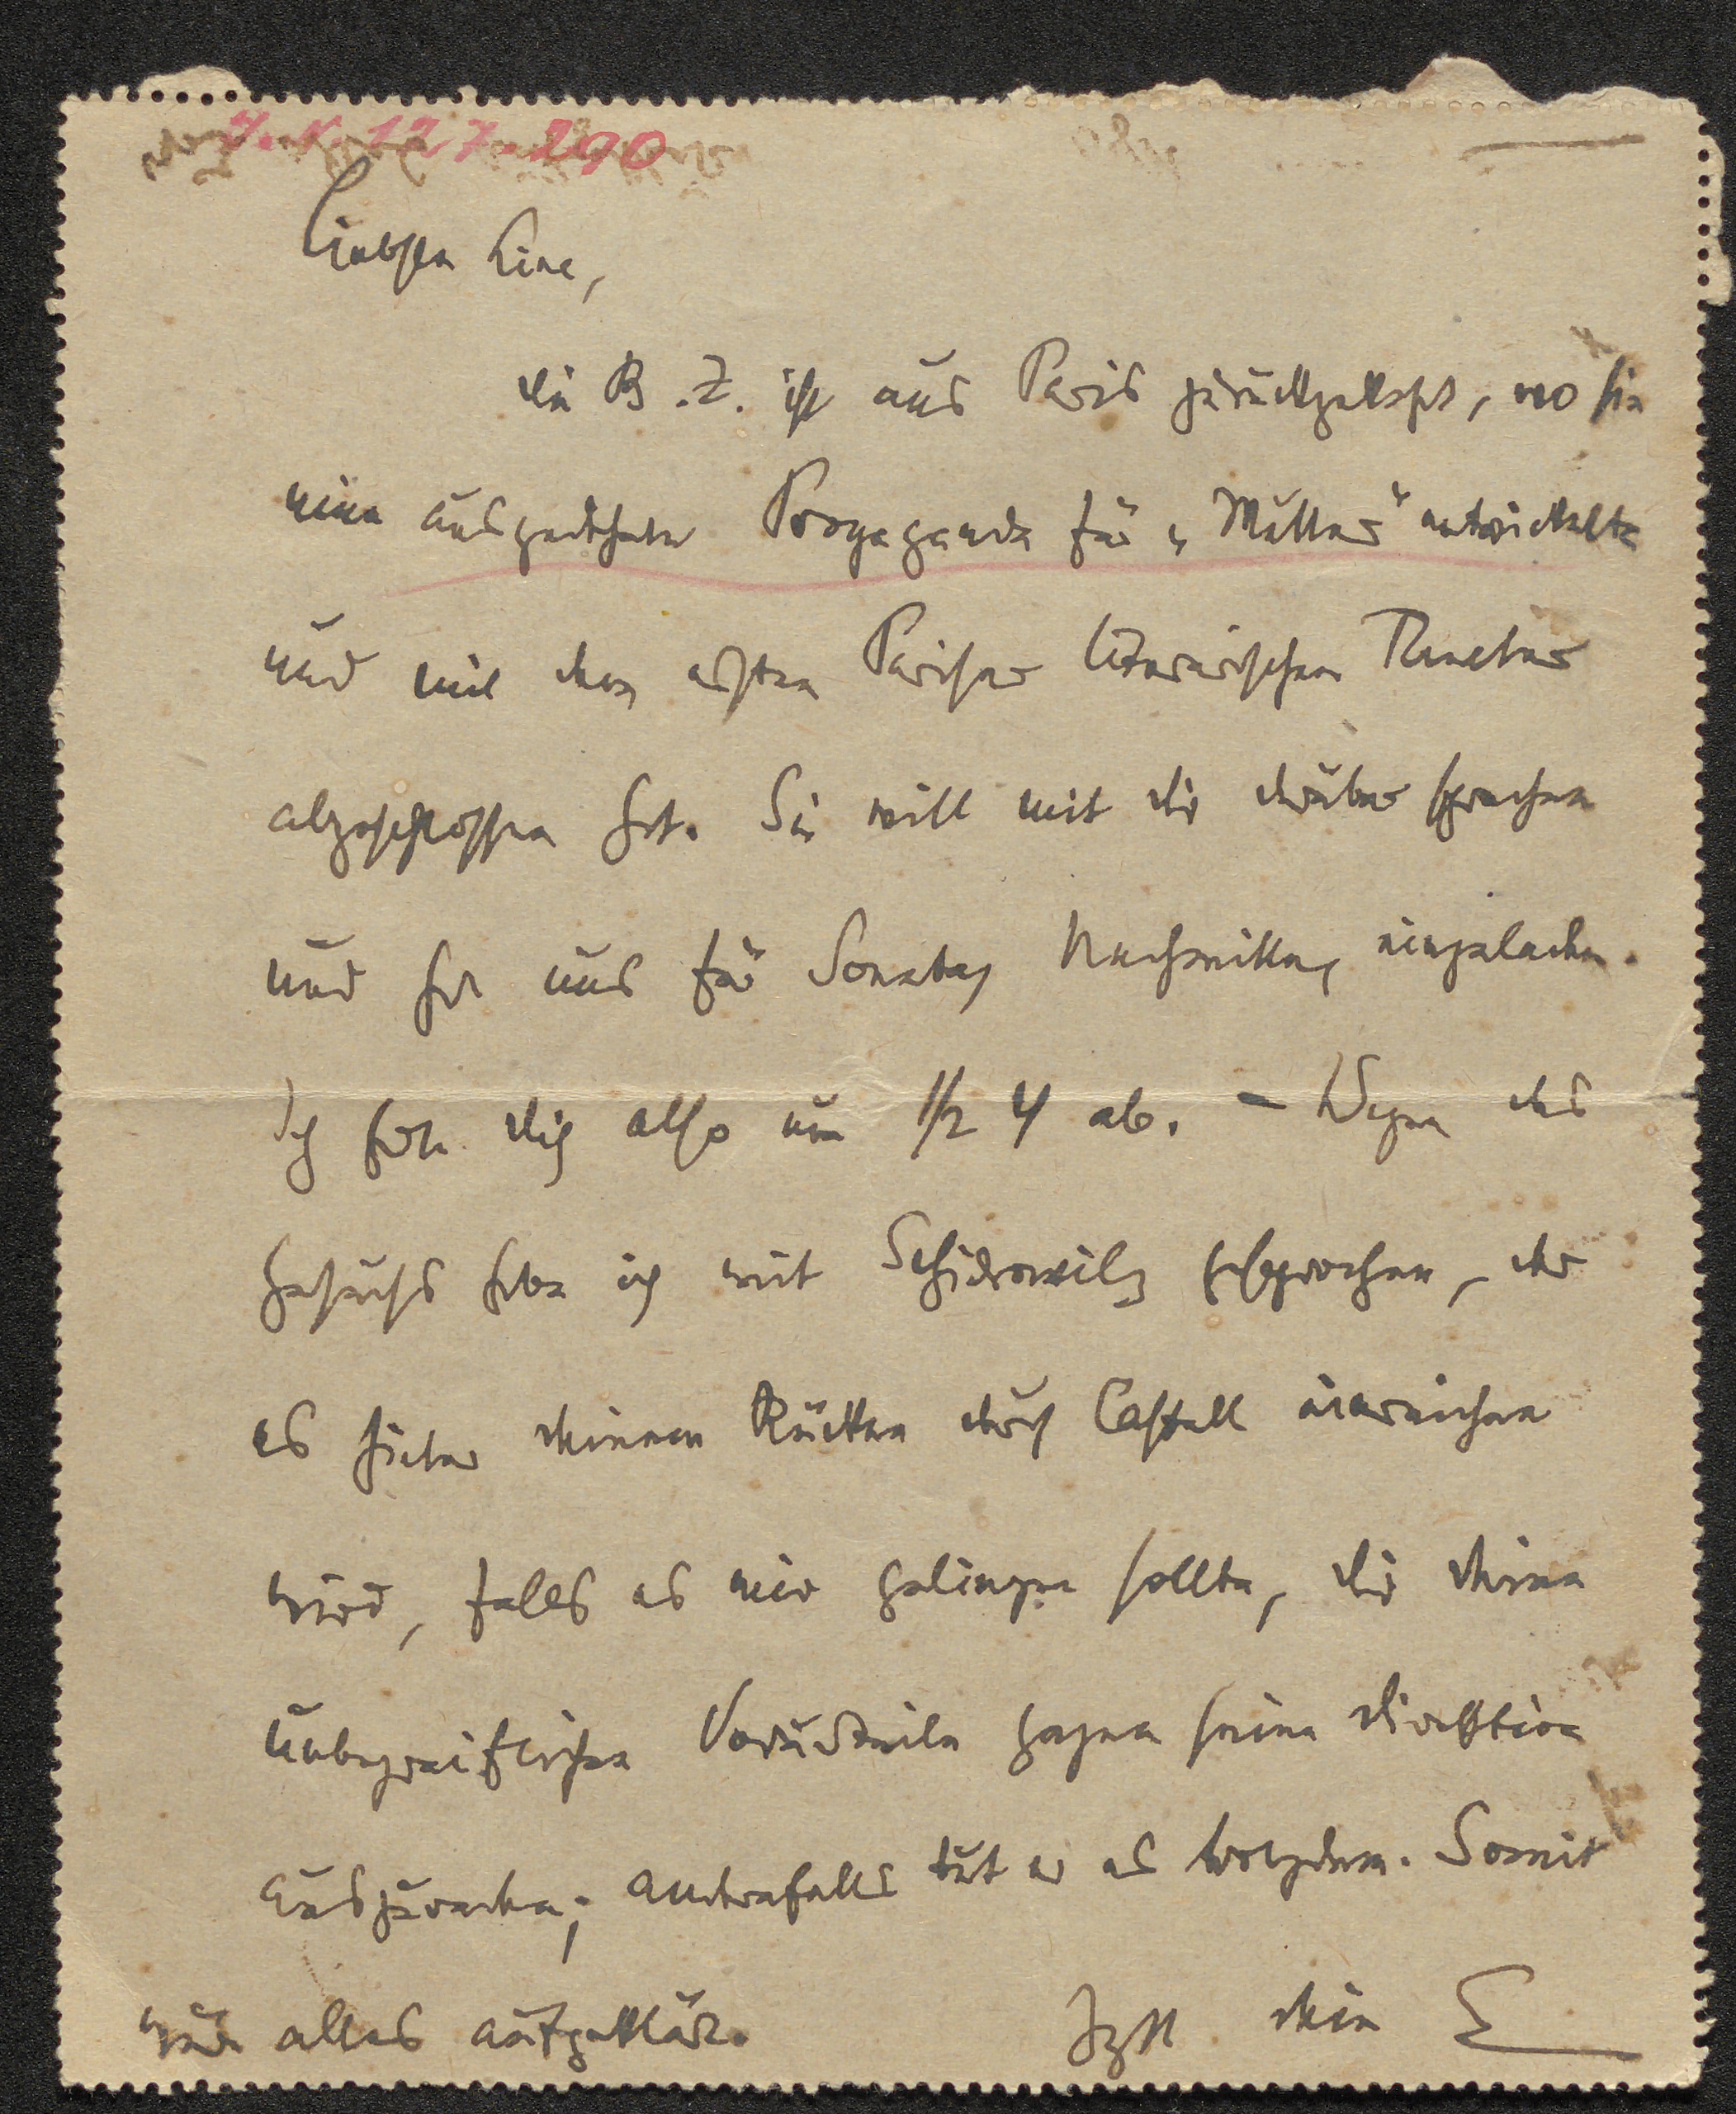 I.N. 127.290
Liebster Line,
die B. Z. ist aus Paris zurückgekehrt, wo sie
eine ausgedehnte Propaganda für „Müller" entwickelte
und mit dem ersten Pariser literarischen Theater
abgeschlossen hat. Sie will mit dir darüber sprechen
und hat uns für Sonntag Nachmittag eingeladen.
Ich hole dich also um 1/2 4 ab. – Wegen des
Gesuchs habe ich mit Schidrowitz gesprochen, der
es hinter deinem Rücken durch Castell einreichen
wird, falls es mir gelingen sollte, dir deine
unbegreiflichen Vorurteile gegen seine Direktion
auszureden; andernfalls tut er es trotzdem. Somit
wäre alles aufgeklärt.
Hzlst dein E